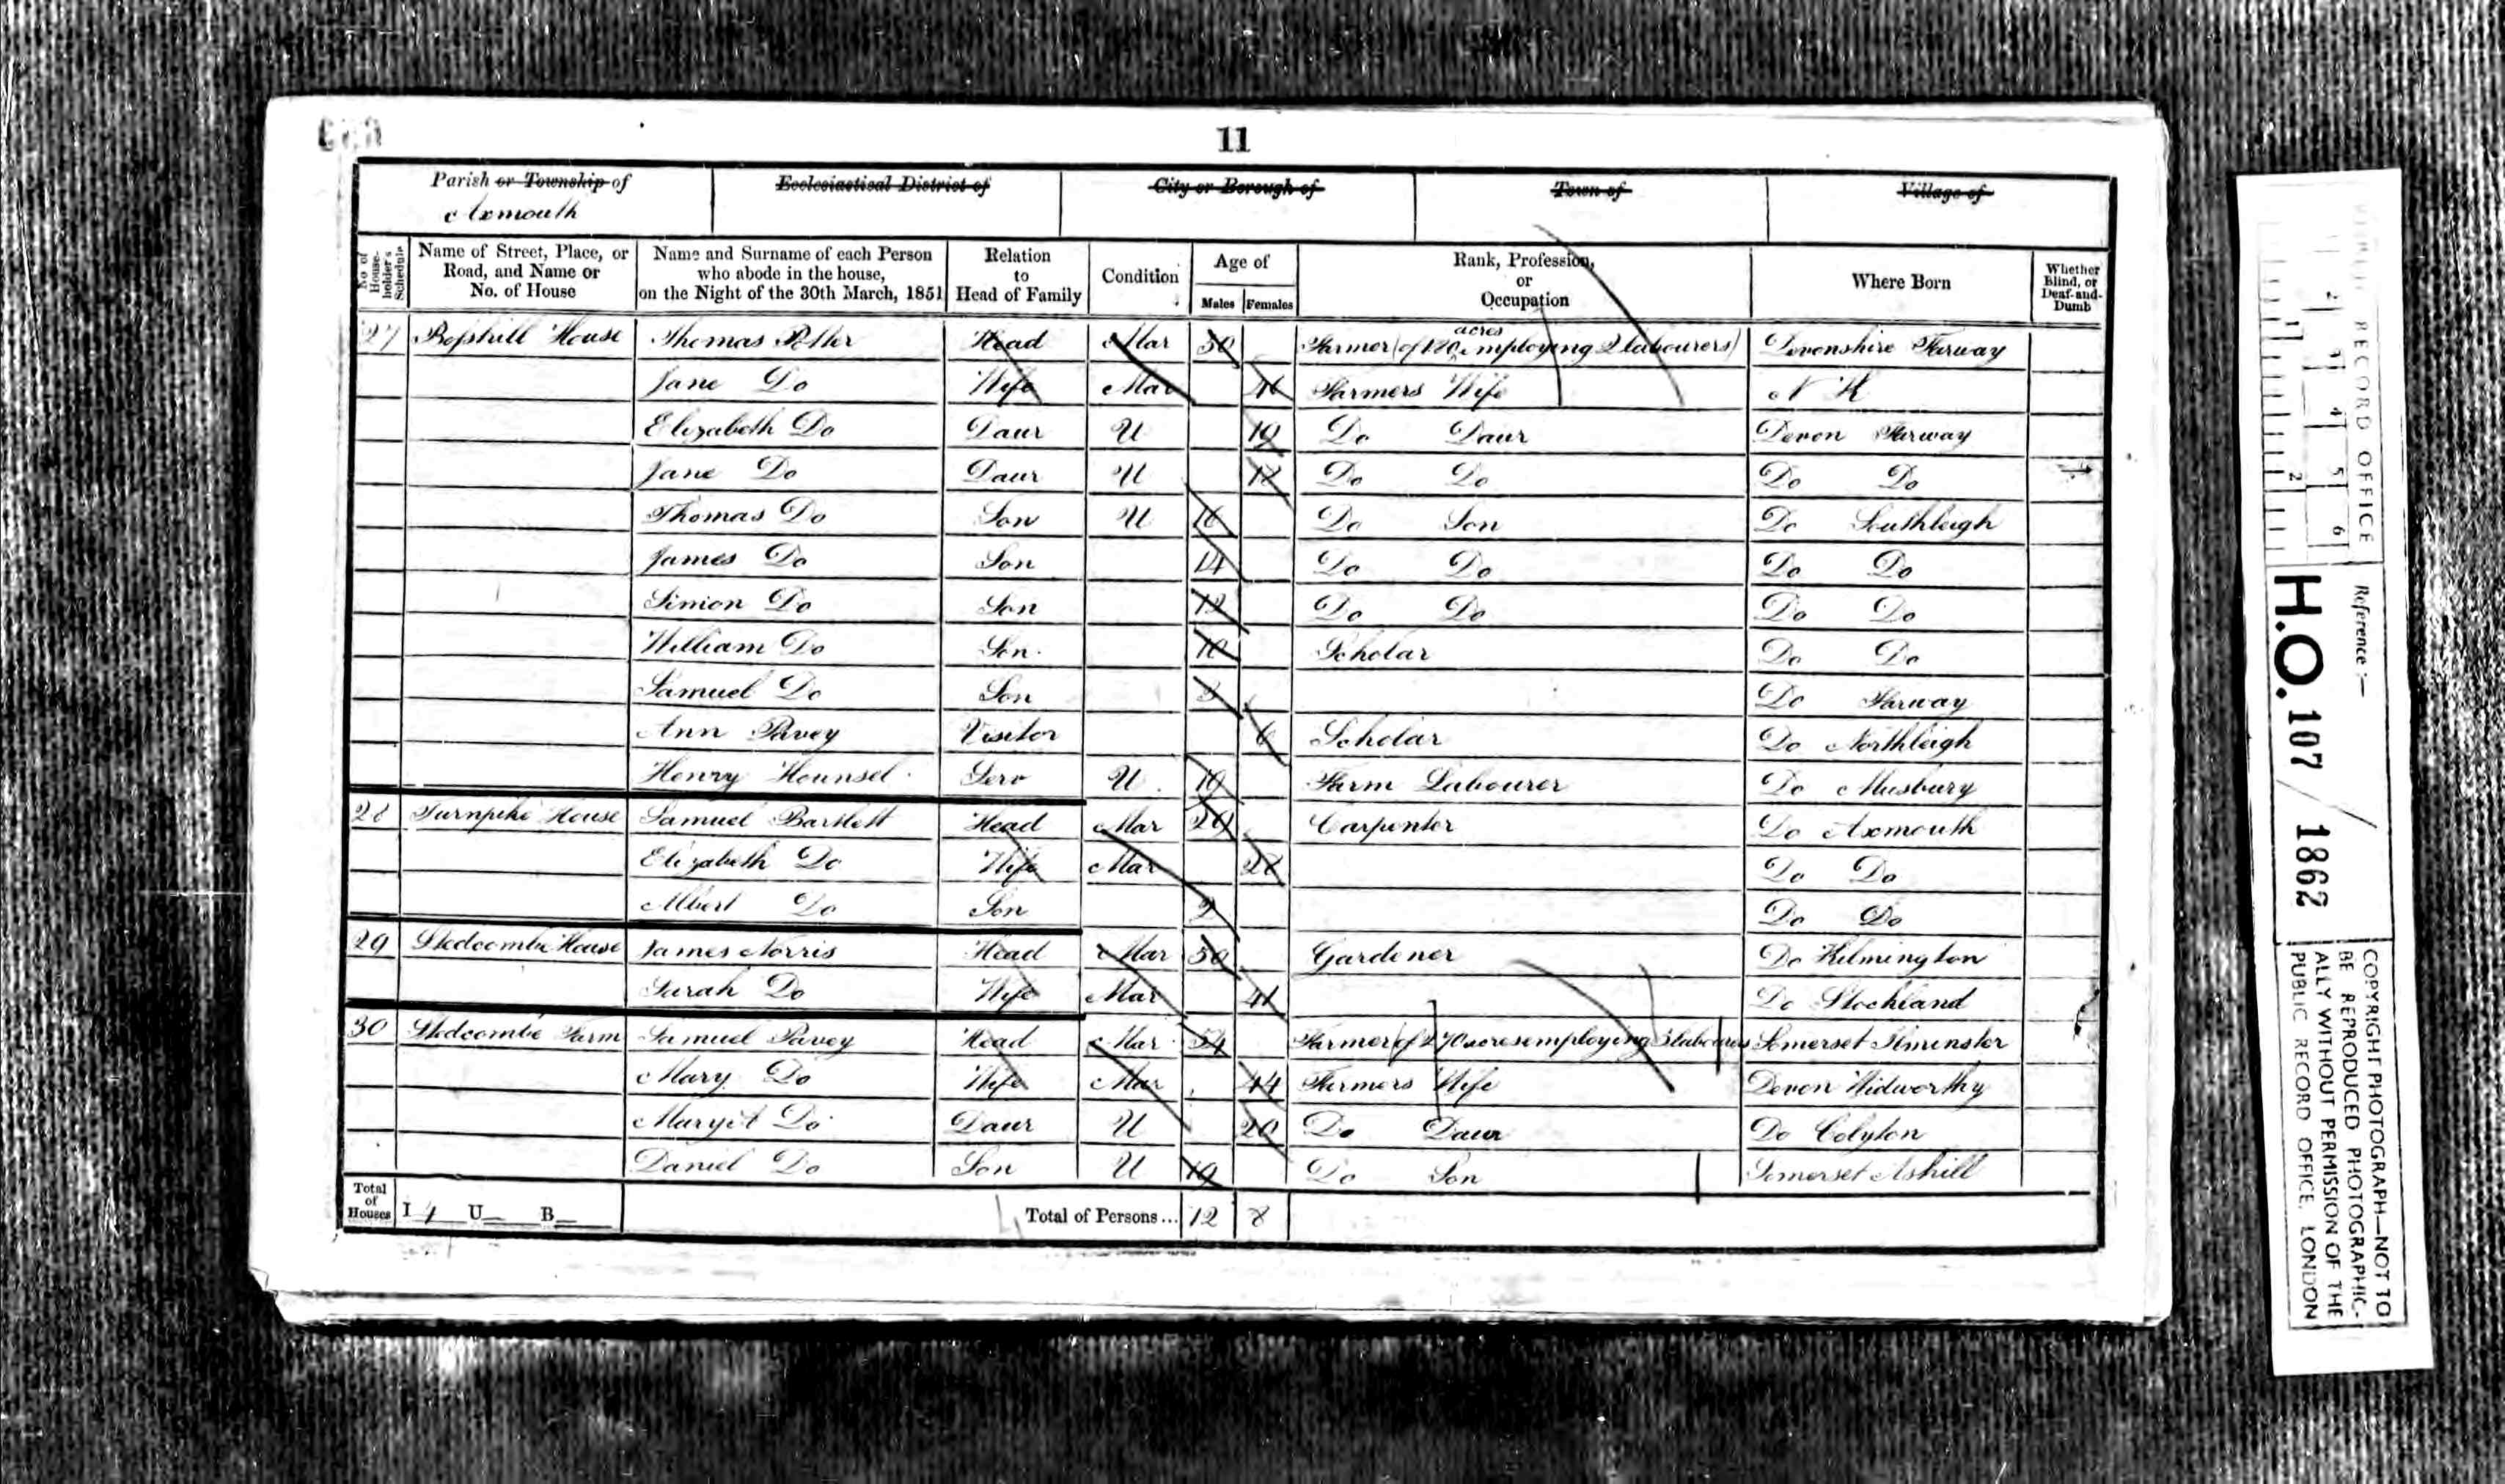 11
Parish or Township of Ecclesiastical District of City or Borough of Town of Village of
Axmouth
No. of House-holder's Schedule Name of Street, Place, or Road, and Name or No. of House Name and Surname of each Person who abode in the house, on the Night of the 30th March, 1851 Relation to Head of Family Condition Age of Males Females Rank, Profession, or Occupation Where Born Whether Blind, or Deaf-and-Dumb
27 Bosshill House Thomas Potter Head Mar 50 Farmer (of 180 acres employing 2 labourers) Devonshire Farway
Jane Do Wife Mar Farmers Wife N K
Elizabeth Do Daur U 19 Do Daur Devon Farway
Jane Do Daur U Do Do Do Do
Thomas Do Son U 16 Do Son Do Southleigh
James Do Son 14 Do Do Do Do
Simon Do Son 12 Do Do Do Do
William Do Son 10 Scholar Do Do
Samuel Do Son Do Farway
Ann Pavey Visitor 6 Scholar Do Northleigh
Henry Hounsel Serv U 19 Farm Labourer Do Musbury
28 Turnpike House Samuel Bartlett Head Mar 29 Carpenter Do Axmouth
Elizabeth Do Wife Mar 28 Do Do
Albert Do Son 2 Do Do
29 Stedcombe House James Norris Head Mar 50 Gardener Do Kilmington
Sarah Do Wife Mar 41 Do Stockland
30 Stedcombe Farm Samuel Pavey Head Mar 54 Farmer (of 270 acres employing 3 labourers Somerset Ilminster
Mary Do Wife Mar 44 Farmers Wife Devon Widworthy
Do Daur U 20 Do Daur Do Colyton
Daniel Do Son U 19 Do Son Somerset Ashill
Total of Houses I 4 U B Total of Persons... 12 8
PUBLIC RECORD OFFICE
1 2 4 5 6
2
Reference:—
H.O. 107 / 1862
COPYRIGHT PHOTOGRAPH—NOT TO
BE REPRODUCED PHOTOGRAPHIC-
ALLY WITHOUT PERMISSION OF THE
PUBLIC RECORD OFFICE, LONDON